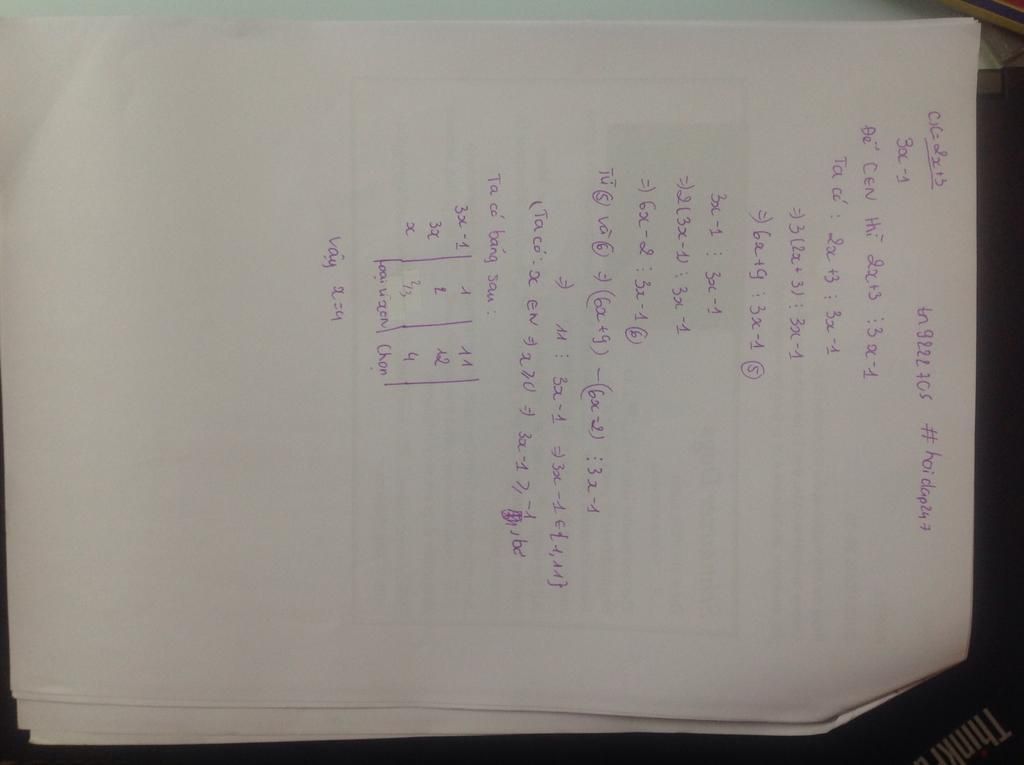 tn9222705 #hoidap247
c) C = 2x+3
3x-1
Để C ∈ N thì 2x+3 ⋮ 3x-1
Ta có : 2x+3 ⋮ 3x-1
=) 3(2x+3) ⋮ 3x-1
=) 6x+9 ⋮ 3x-1 (5)
3x-1 ⋮ 3x-1
=) 2(3x-1) ⋮ 3x-1
=) 6x-2 ⋮ 3x-1 (6)
Từ (5) và (6) =) (6x+9) - (6x-2) ⋮ 3x-1
=) 11 ⋮ 3x-1 =) 3x-1 ∈ {1,11}
(Ta có: x ∈ N =) x ≥ 0 =) 3x-1 ≥ -1
Ta có bảng sau :
3x-1 | 1 | 11
3x | 2 | 12
x | 2/3 | 4
loại vì x∈N | Chọn
Vậy x=4
Think